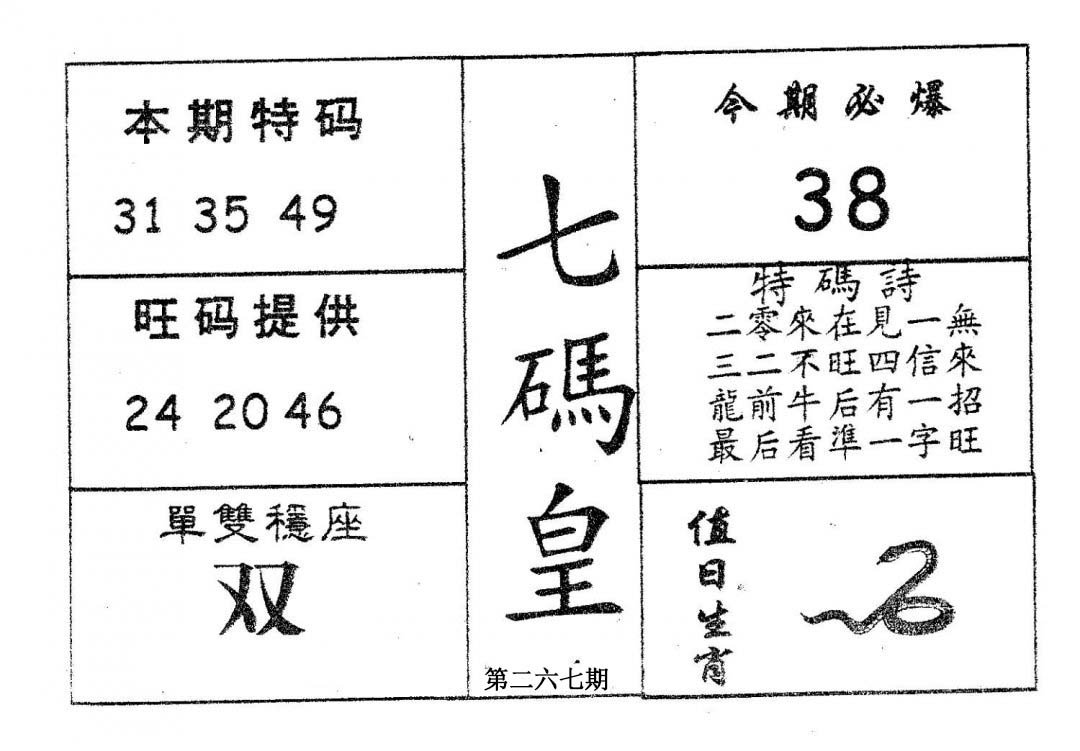 本期特码
31 35 49
旺码提供
24 20 46
單雙穩座
双
七碼皇
第二六七期
今期必爆
38
特碼詩
二零來在見一無
三二不旺四信來
龍前牛后有一招
最后看準一字旺
值日生肖